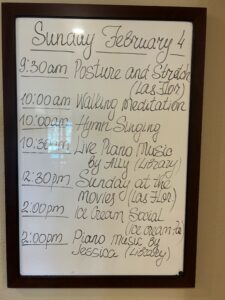 Sunday February 4
9:30am Posture and Stretch
(Las Flor)
10:00am Walking Meditation
10:00am Hymn Singing
10:30am Live Piano Music
by Ally (Library)
2:30pm Sunday at the
Movies (Las Flor)
2:00pm Ice Cream Social
(Ice cream
2:00pm Piano Music by
Jessica (Library)